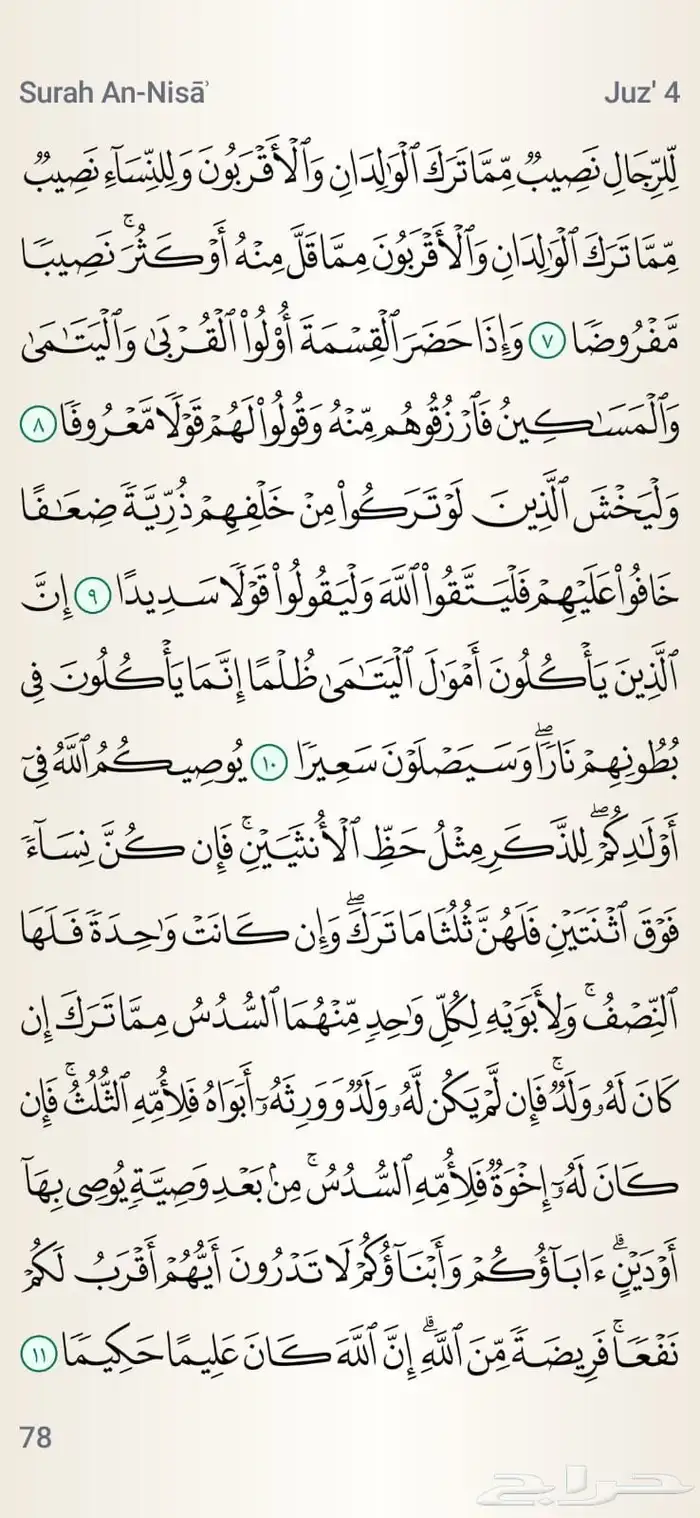 Surah An-Nisāʾ Juz' 4
لِّلرِّجَالِ نَصِيبٌ مِّمَّا تَرَكَ ٱلْوَٰلِدَانِ وَٱلْأَقْرَبُونَ وَلِلنِّسَآءِ نَصِيبٌ
مِّمَّا تَرَكَ ٱلْوَٰلِدَانِ وَٱلْأَقْرَبُونَ مِمَّا قَلَّ مِنْهُ أَوْ كَثُرَ ۚ نَصِيبًا
مَّفْرُوضًا ٧ وَإِذَا حَضَرَ ٱلْقِسْمَةَ أُو۟لُوا۟ ٱلْقُرْبَىٰ وَٱلْيَتَٰمَىٰ
وَٱلْمَسَٰكِينُ فَٱرْزُقُوهُم مِّنْهُ وَقُولُوا۟ لَهُمْ قَوْلًا مَّعْرُوفًا ٨
وَلْيَخْشَ ٱلَّذِينَ لَوْ تَرَكُوا۟ مِنْ خَلْفِهِمْ ذُرِّيَّةً ضِعَٰفًا
خَافُوا۟ عَلَيْهِمْ فَلْيَتَّقُوا۟ ٱللَّهَ وَلْيَقُولُوا۟ قَوْلًا سَدِيدًا ٩ إِنَّ
ٱلَّذِينَ يَأْكُلُونَ أَمْوَٰلَ ٱلْيَتَٰمَىٰ ظُلْمًا إِنَّمَا يَأْكُلُونَ فِى
بُطُونِهِمْ نَارًا ۖ وَسَيَصْلَوْنَ سَعِيرًا ١٠ يُوصِيكُمُ ٱللَّهُ فِىٓ
أَوْلَٰدِكُمْ ۖ لِلذَّكَرِ مِثْلُ حَظِّ ٱلْأُنثَيَيْنِ ۚ فَإِن كُنَّ نِسَآءً
فَوْقَ ٱثْنَتَيْنِ فَلَهُنَّ ثُلُثَا مَا تَرَكَ ۖ وَإِن كَانَتْ وَٰحِدَةً فَلَهَا
ٱلنِّصْفُ ۚ وَلِأَبَوَيْهِ لِكُلِّ وَٰحِدٍ مِّنْهُمَا ٱلسُّدُسُ مِمَّا تَرَكَ إِن
كَانَ لَهُۥ وَلَدٌ ۚ فَإِن لَّمْ يَكُن لَّهُۥ وَلَدٌ وَوَرِثَهُۥٓ أَبَوَاهُ فَلِأُمِّهِ ٱلثُّلُثُ ۚ فَإِن
كَانَ لَهُۥٓ إِخْوَةٌ فَلِأُمِّهِ ٱلسُّدُسُ ۚ مِنۢ بَعْدِ وَصِيَّةٍ يُوصِى بِهَآ
أَوْ دَيْنٍ ۗ ءَابَآؤُكُمْ وَأَبْنَآؤُكُمْ لَا تَدْرُونَ أَيُّهُمْ أَقْرَبُ لَكُمْ
نَفْعًا ۚ فَرِيضَةً مِّنَ ٱللَّهِ ۗ إِنَّ ٱللَّهَ كَانَ عَلِيمًا حَكِيمًا ١١
78
حراج